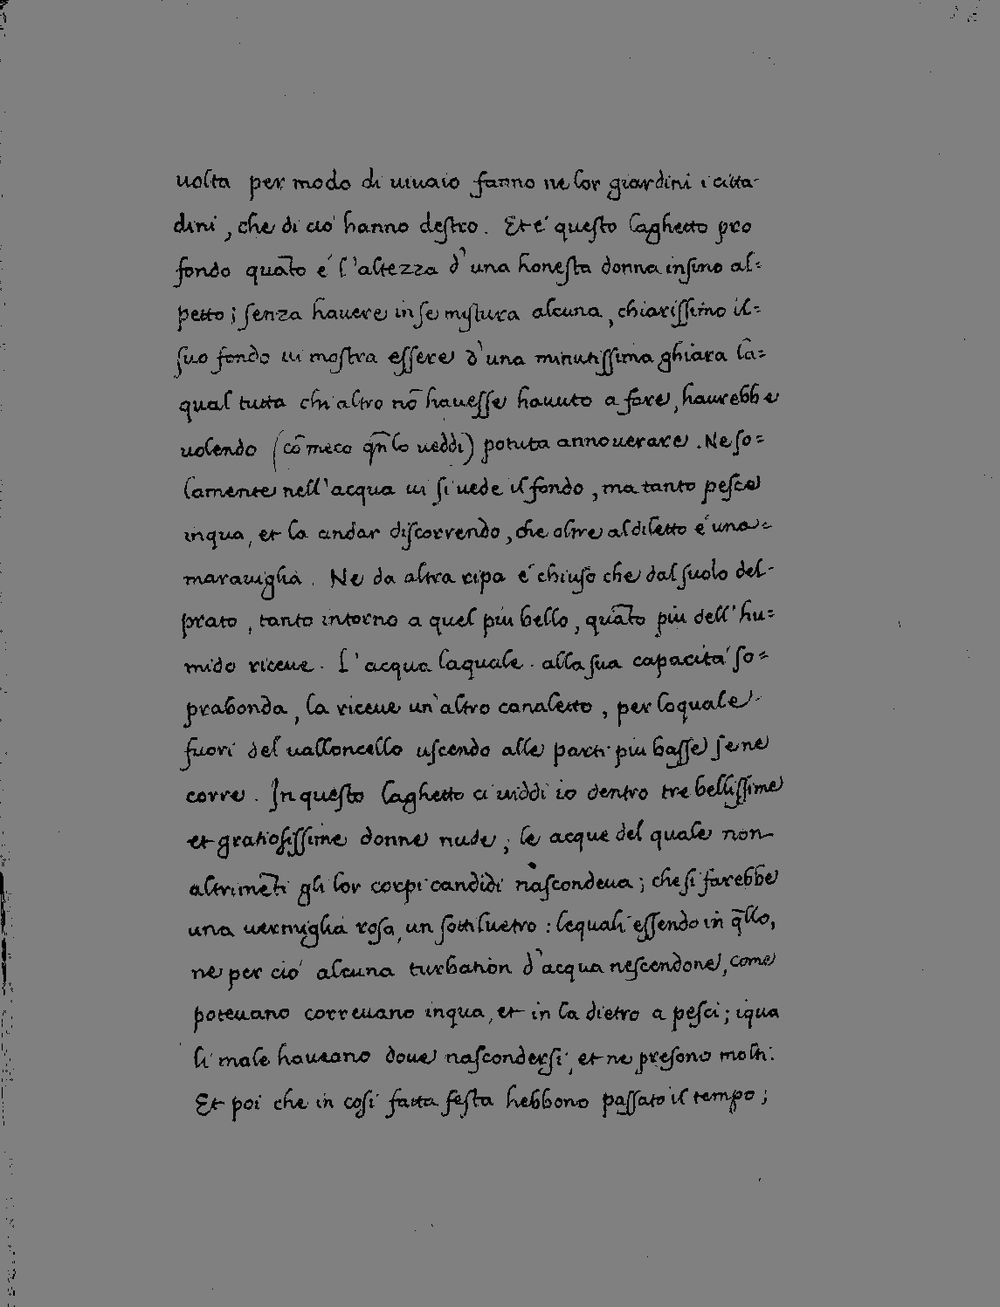 uolta per modo di uiuaio fanno ne lor giardini i citta
dini, che di ciò hanno destro. Et é questo laghetto pro
fondo quãto é l'altezza d'una honesta donna insino al=
petto; senza hauere in se mistura alcuna, chiarissimo il=
suo fondo ui mostra essere d'una minutissima ghiara la=
qual tutta chi altro nõ hauesse hauuto a fare, haurebbe
uolendo (cõ meco qñ lo ueddi) potuta annouerare. Ne so=
lamente nell'acqua ui si uede il fondo, ma tanto pesce
in qua, et la andar discorrendo, che oltre al diletto é una=
marauiglia. Ne da altra ripa é chiuso che dal suolo del-
prato, tanto intorno a quel piu bello, quãto piu dell'hu=
mido riceue. L'acqua laquale. alla sua capacità so=
prabonda, la riceue un'altro canaletto, per loquale
fuori del ualloncello uscendo alle parti piu basse sene
corre. In questo laghetto ci uiddi io dentro tre bellissime
et gratiosissime donne nude; le acque del quale non
altrimẽti gli lor corpi candidi nascondeua; che si farebbe
una uermiglia rosa, un sottil uetro: lequali essendo in q̃llo,
ne per ciò alcuna turbation d'acqua nescendone, come
poteuano correuano in qua, et in la dietro a pesci; i qua
li male haueano doue nascondersi, et ne presono molti.
Et poi che in cosi fatta festa hebbono passato il tempo;